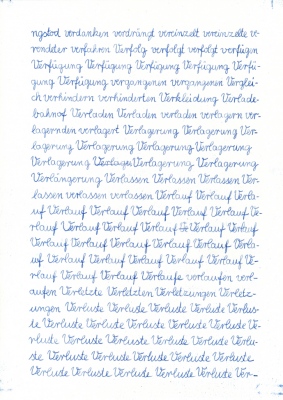 ngstod verdanken verdrängt vereinzelt vereinzelte ve-
rendeter verfahren Verfolg verfolgt verfolgt verfügen
Verfügung Verfügung Verfügung Verfügung Verfü-
gung Verfügung vergangenen vergangenen Verglei-
ch verhindern verhinderten Verkleidung Verlade-
bahnhof Verladen Verladen verladen verlagern ver-
lagernden verlagert Verlagerung Verlagerung Ver-
lagerung Verlagerung Verlagerung Verlagerung
Verlagerung Verlagerung Verlagerung
Verlängerung Verlassen Verlassen Verlassen Ver-
lassen verlassen verlassen Verlauf Verlauf Verla-
uf Verlauf Verlauf Verlauf Verlauf Verlauf Ve-
rlauf Verlauf Verlauf Verlauf Verlauf Verlauf
Verlauf Verlauf Verlauf Verlauf Verlauf Verla-
uf Verlauf Verlauf Verlauf Verlauf Verlauf Ve-
rlauf Verlauf Verlauf Verlaufe verlaufen verl-
aufen Verletzte Verletzten Verletzungen Verletz-
ungen Verluste Verluste Verluste Verluste Verlus-
te Verluste Verluste Verluste Verluste Verluste Ve-
rluste Verluste Verluste Verluste Verluste Verlu-
ste Verluste Verluste Verluste Verluste Verluste
Verluste Verluste Verluste Verluste Verluste Ver-